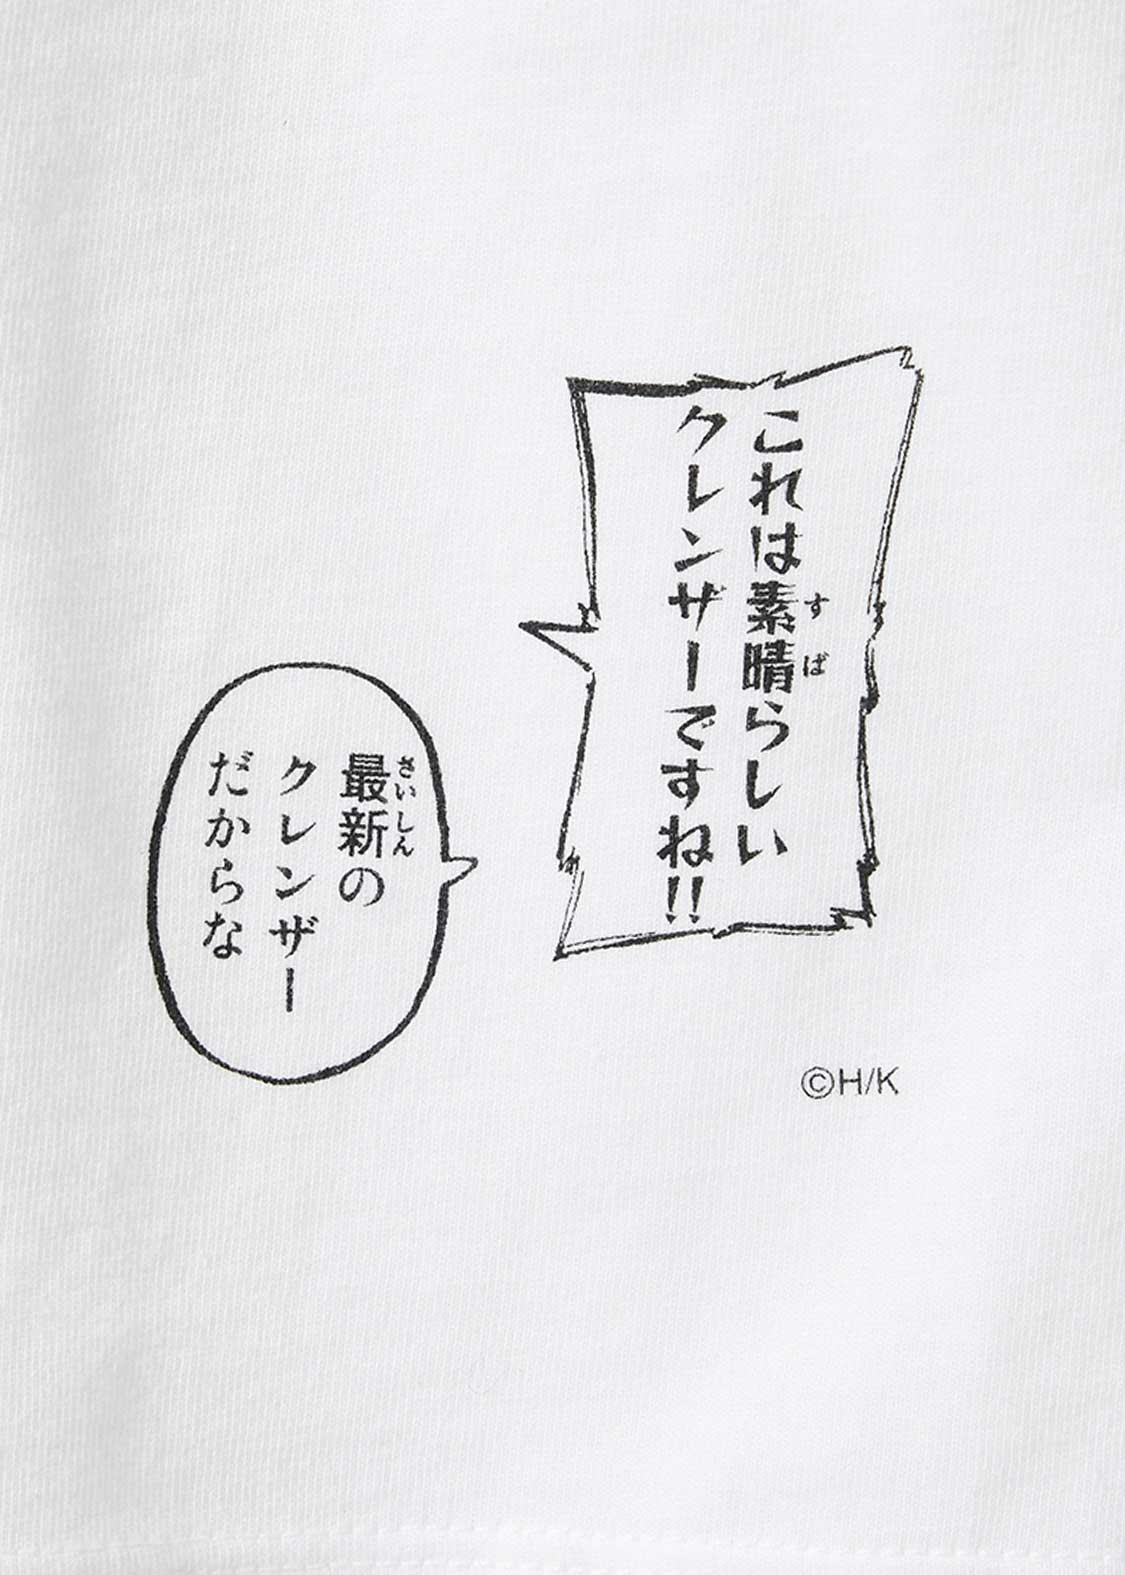 これは素晴らしい
すば
クレンザーですね!!
最新の
さいしん
クレンザー
だからな
©H/K